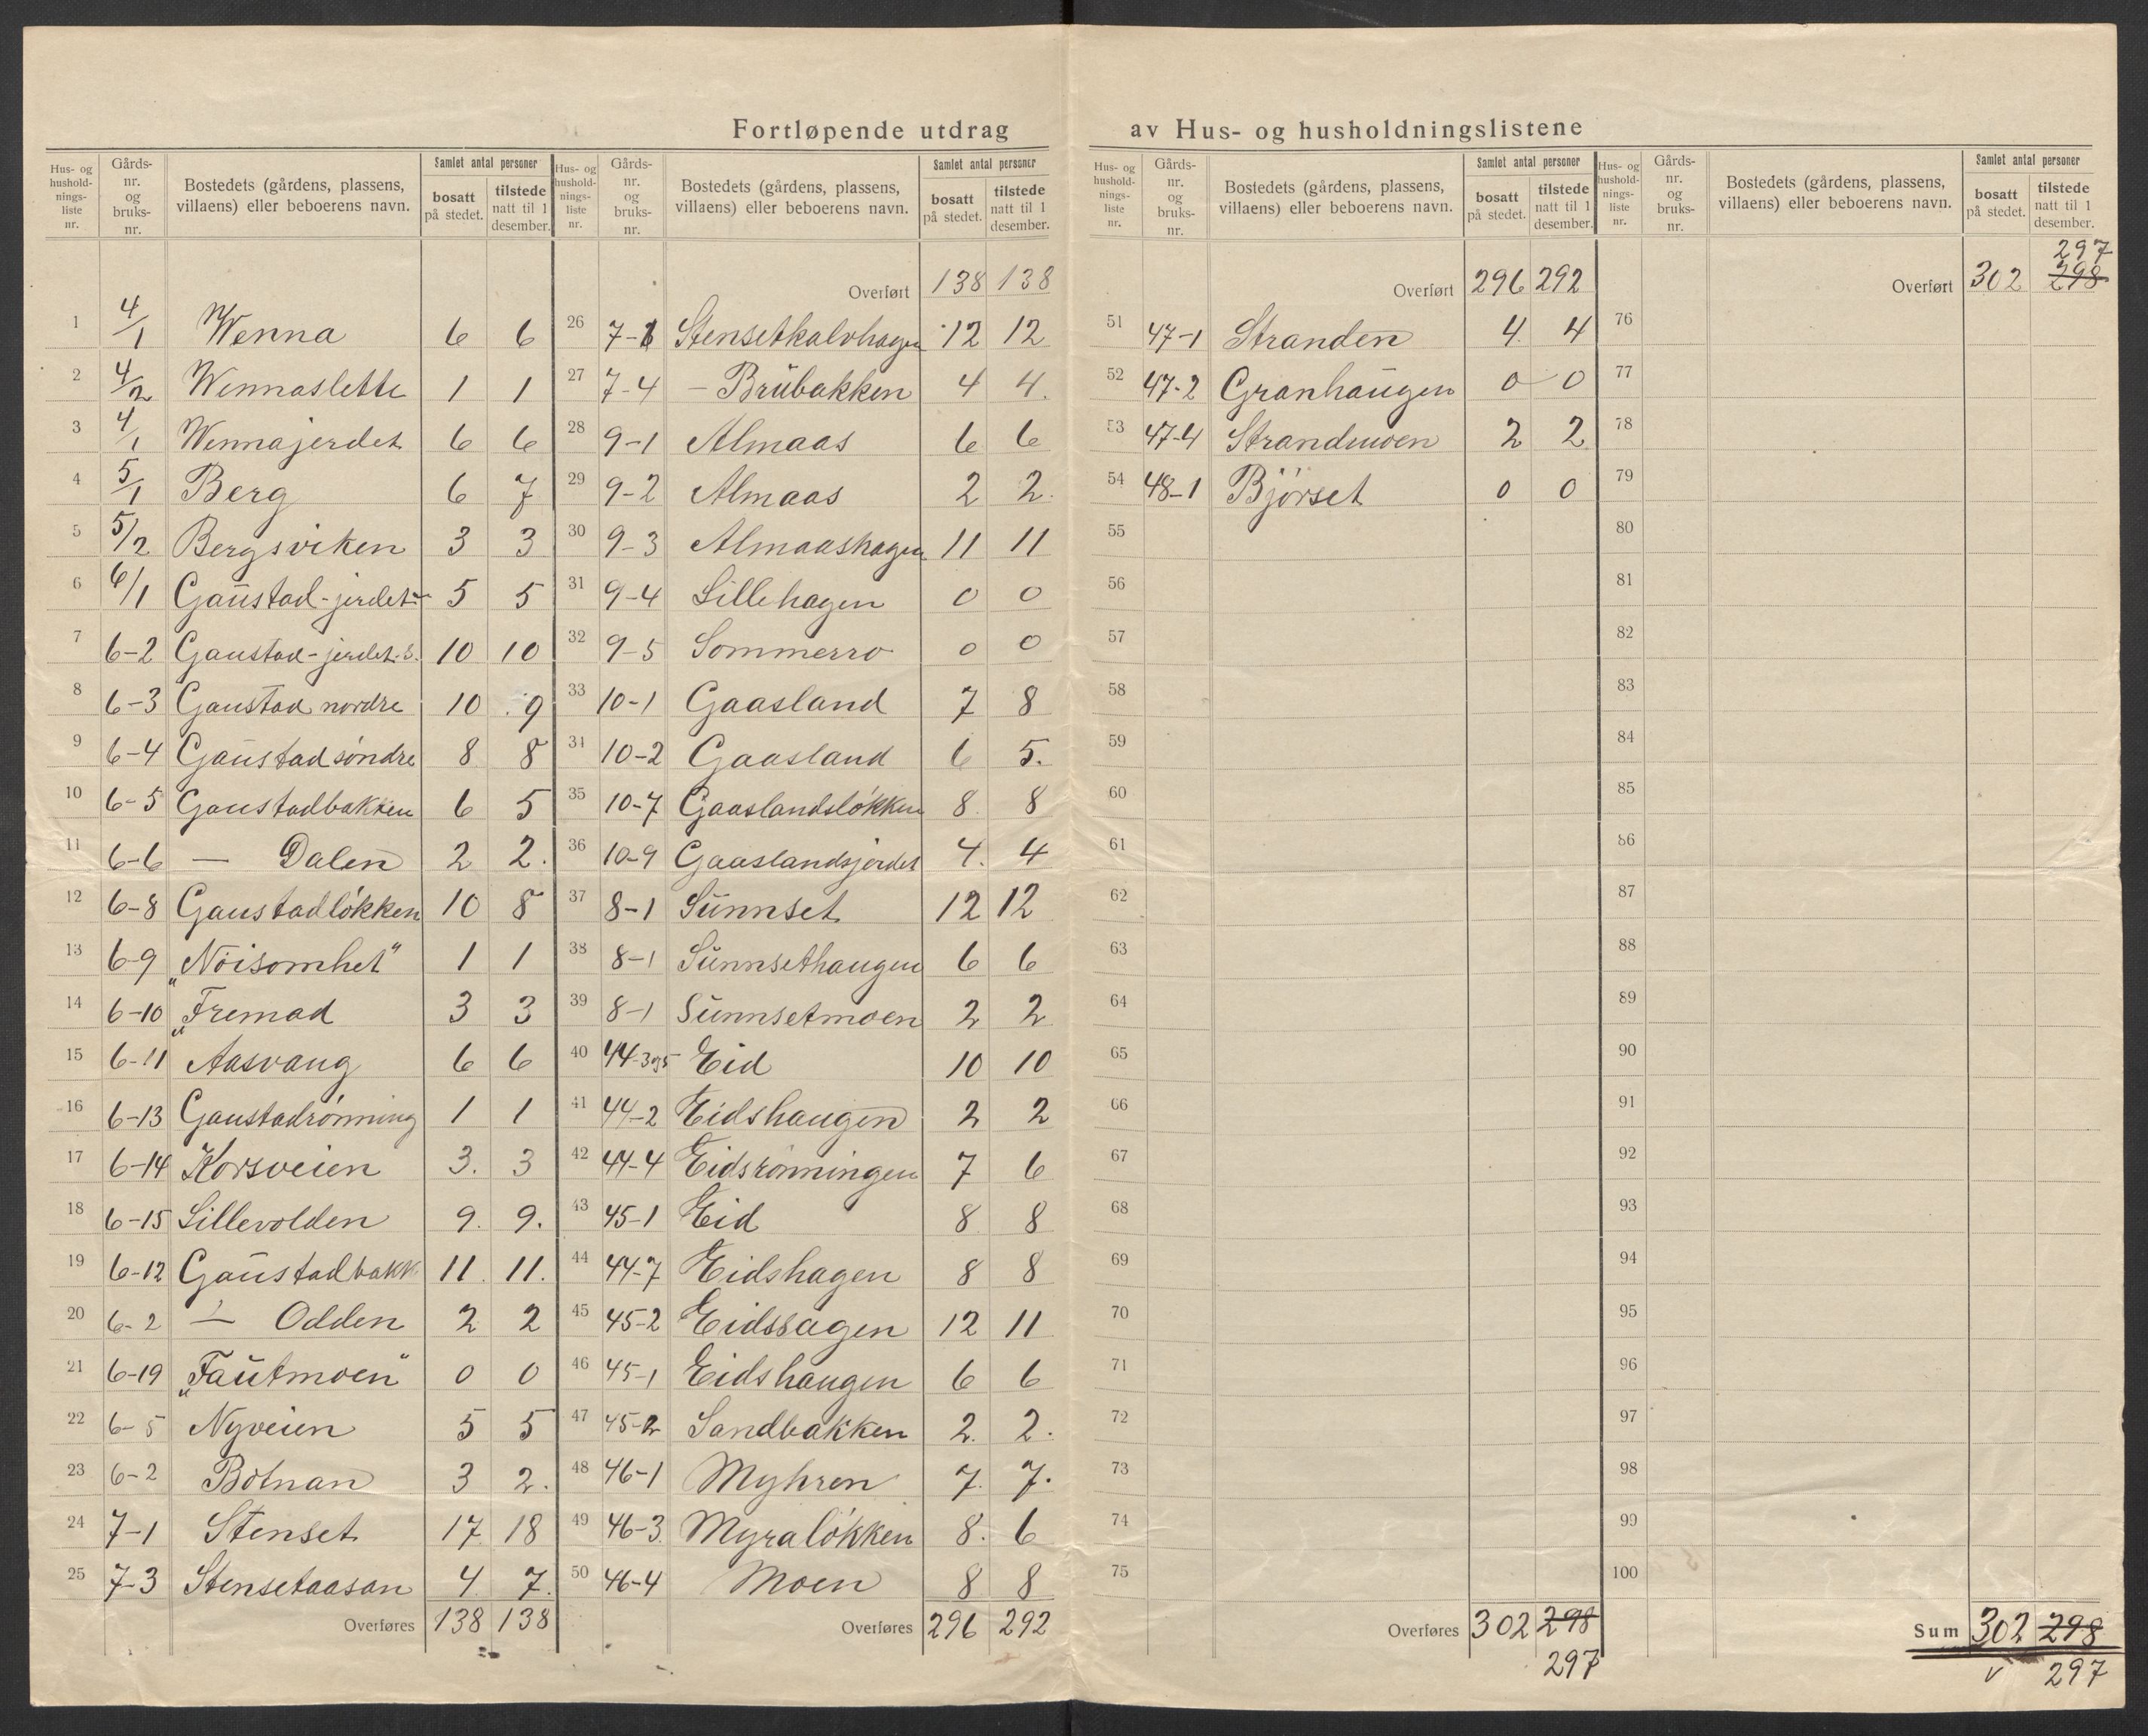 Fortløpende utdrag av Hus- og husholdningslistene
Hus- og husholdningsliste nr. | Gårds-nr. og bruks-nr. | Bostedets (gårdens, plassens, villaens) eller beboerens navn. | Samlet antal personer | bosatt på stedet. | tilstede natt til 1 desember.
1 4/1 Wenna 6 6
2 4/2 Wennaslette 1 1
3 4/1 Wennajerdet 6 6
4 5/1 Berg 6 7
5 5/2 Bergsviken 3 3
6 6/1 Gaustad-jerdet 5 5
7 6-2 Gaustad-jerdet.s. 10 10
8 6-3 Gaustad nordre 10 9
9 6-4 Gaustad söndre 8 8
10 6-5 Gaustadbakken 6 5
11 6-6 — Dalen 2 2.
12 6-8 Gaustadlökken 10 8
13 6-9 „Nöisomhet" 1 1
14 6-10 „Fremad 3 3
15 6-11 Aasvang 6 6
16 6-13 Gaustadrönning 1 1
17 6-14 Korsveien 3. 3
18 6-15 Lillevolden 9. 9.
19 6-12 Gaustadbakk 11. 11.
20 6-2 — Odden 2 2
21 6-19 „Fautmoen" 0 0
22 6-5 Nyveien 5 5
23 6-2 Botnan 3 2.
24 7-1 Stenset 17 18
25 7-3 Stensetaasan 4 7.
Overføres 138 138
Hus- og husholdningsliste nr. | Gårds-nr. og bruks-nr. | Bostedets (gårdens, plassens, villaens) eller beboerens navn. | Samlet antal personer | bosatt på stedet. | tilstede natt til 1 desember.
Overført 138 138
26 7-1 Stensetkalvhagen 12 12
27 7-4 — Brubakken 4 4.
28 9-1 Almaas 6 6
29 9-2 Almaas 2 2.
30 9-3 Almaashagen 11 11
31 9-4 Lillehagen 0 0
32 9-5 Sommerro 0 0
33 10-1 Gaasland 7 8
34 10-2 Gaasland 6 5.
35 10-7 Gaaslandslökken 8 8
36 10-9 Gaaslandsjerdet 4. 4
37 8-1 Sunnset 12 12
38 8-1 Sunnsethaugen 6 6
39 8-1 Sunnsetmoen 2 2
40 44-3og5 Eid 10 10
41 44-2 Eidshaugen 2 2
42 44-4 Eidsrönningen 7 6
43 45-1 Eid 8 8
44 44-7 Eidshagen 8 8
45 45-2 Eidssagen 12 11
46 45-1 Eidshaugen 6 6
47 45-2 Sandbakken 2. 2.
48 46-1 Myhren 7. 7.
49 46-3 Myralökken 8. 6
50 46-4 Moen 8 8
Overføres 296 292
Hus- og husholdningsliste nr. | Gårds-nr. og bruks-nr. | Bostedets (gårdens, plassens, villaens) eller beboerens navn. | Samlet antal personer | bosatt på stedet. | tilstede natt til 1 desember.
Overført 296 292
51 47-1 Stranden 4 4
52 47-2 Granhaugen 0 0
53 47-4 Strandmoen 2 2
54 48-1 Björset 0 0
55
56
57
58
59
60
61
62
63
64
65
66
67
68
69
70
71
72
73
74
75
Overføres 302 298
297
Hus- og husholdningsliste nr. | Gårds-nr. og bruks-nr. | Bostedets (gårdens, plassens, villaens) eller beboerens navn. | Samlet antal personer | bosatt på stedet. | tilstede natt til 1 desember.
297
Overført 302 298
76
77
78
79
80
81
82
83
84
85
86
87
88
89
90
91
92
93
94
95
96
97
98
99
100
Sum 302 298
v 297